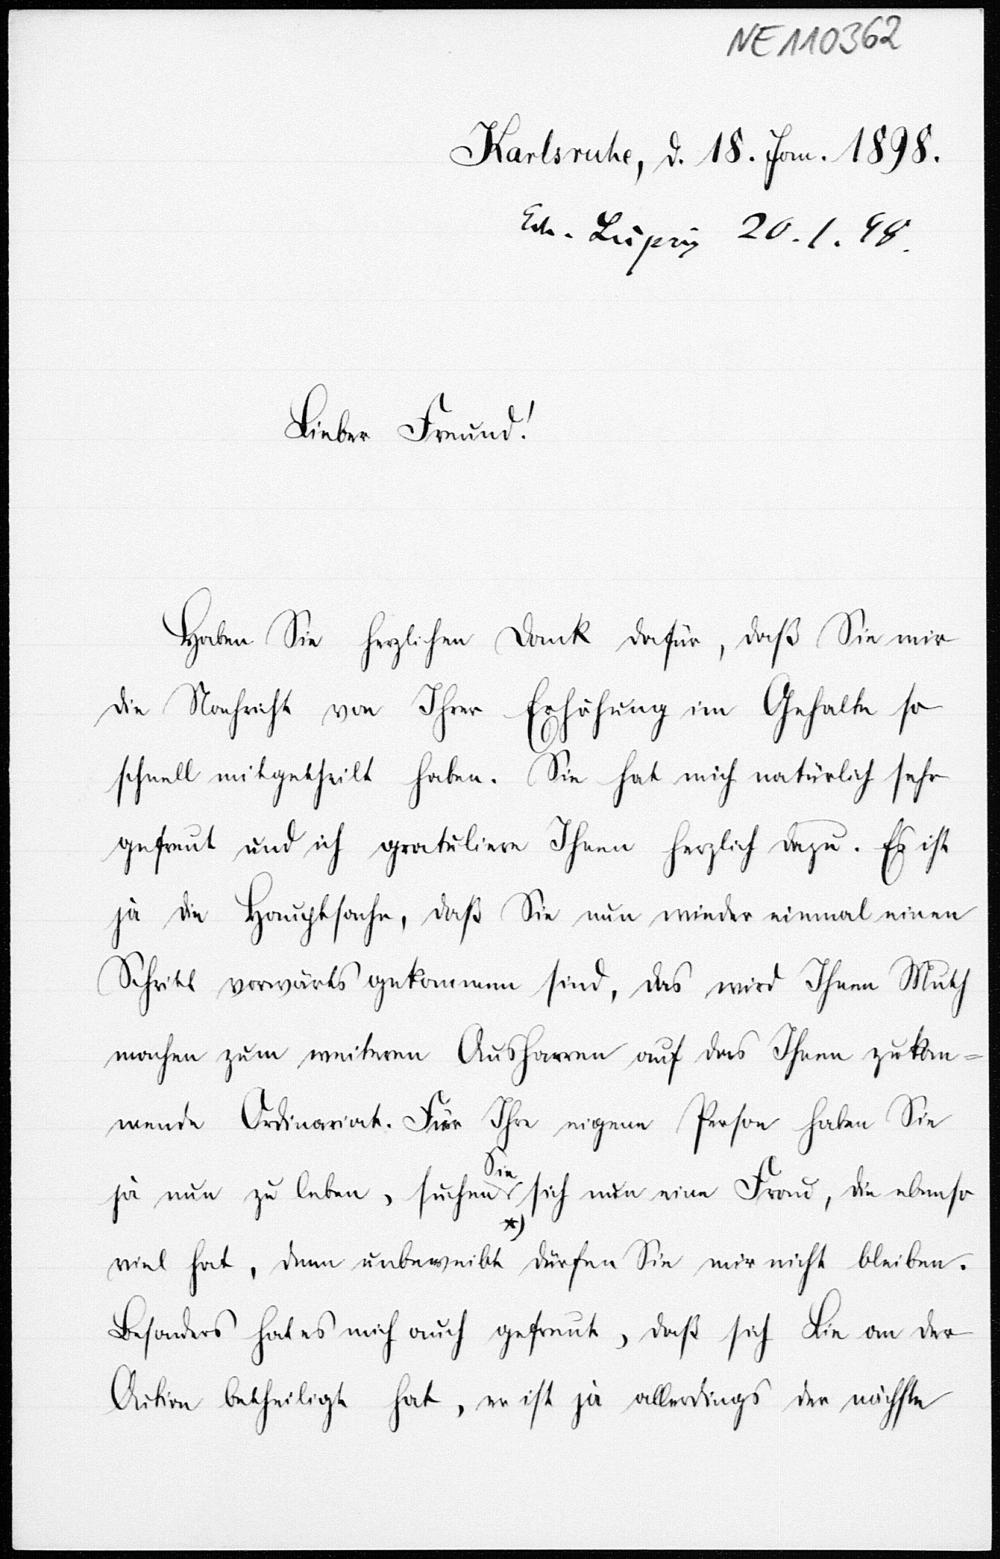 NE110362
Karlsruhe, d. 18. Jan. 1898.
Leipzig 20.1.98.
Lieber Freund!
Haben Sie herzlichen Dank dafür, daß Sie mir
die Nachricht von Ihrer Erhöhung im Gehalte so
schnell mitgetheilt haben. Sie hat mich natürlich sehr
gefreut und ich gratuliere Ihnen herzlich dazu. Es ist
ja die Hauptsache, daß Sie nun wieder einmal einen
Schritt vorwärts gekommen sind, das wird Ihnen Muth
machen zum weiteren Ausharren auf das Ihnen zukom=
mende Ordinariat. Für Ihre eigene Person haben Sie
ja nun zu leben, suchen Sie sich nun eine Frau, die ebenso
viel hat, denn unbeweibt *) dürfen Sie mir nicht bleiben.
Besonders hat es mich auch gefreut, daß sich Lie an der
Aktion betheiligt hat, er ist ja allerdings der nächste